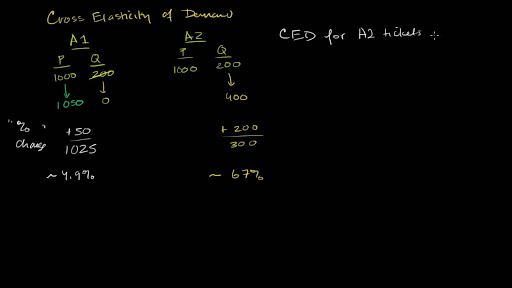 Cross Elasticity of Demand
A1 A2
P Q P Q
1000 200 1000 200
1050 0 400
"% "
change
+50
1025
+200
300
~ 4.9% ~ 67%
CED for A2 tickets